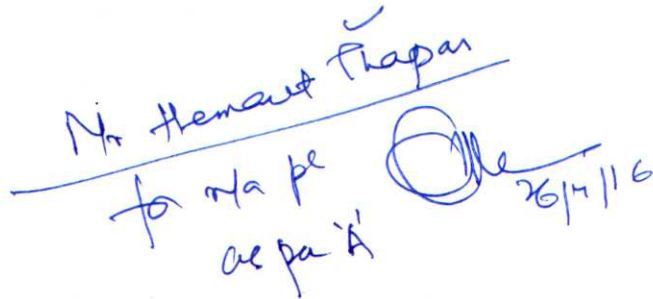 Mr Hemant Thapar
for n/a pl
as per 'A'
26/4/16